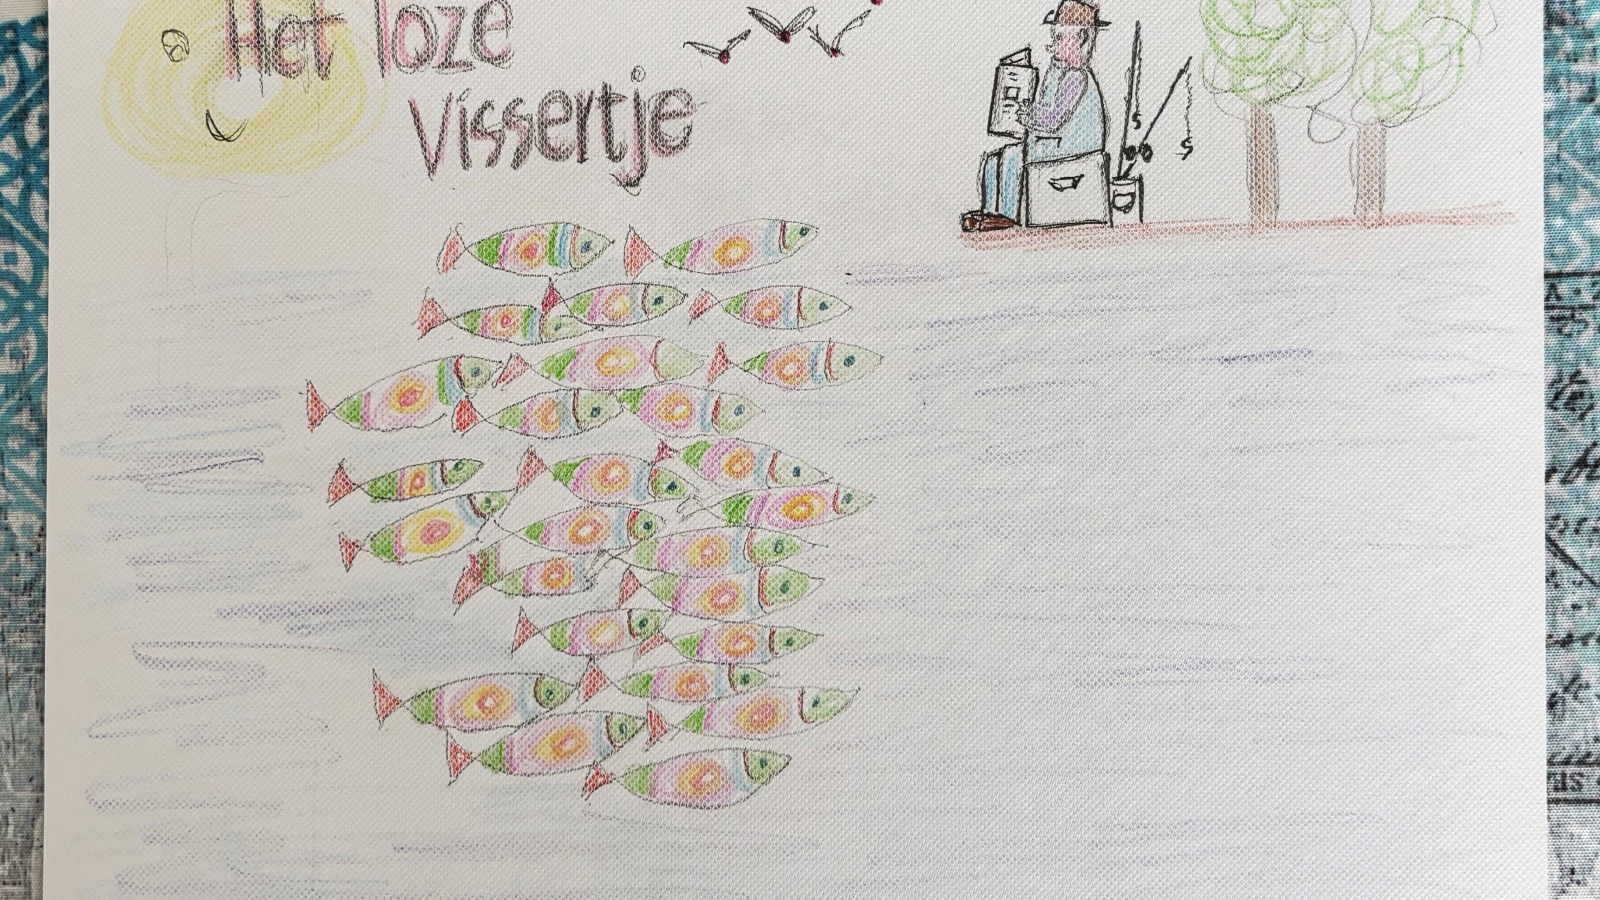 Het loze
Vissertje